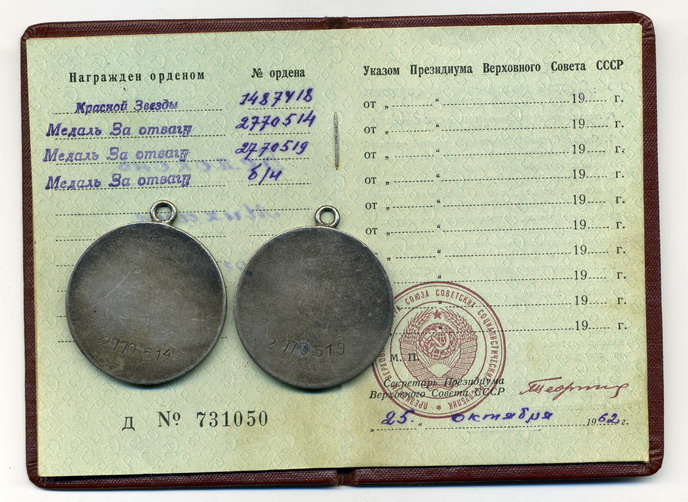 Награжден орденом № ордена
Красной Звезды 1487418
Медаль За отвагу 2770514
Медаль За отвагу 2770519
Медаль За отвагу б/н
2770514
2770519
Д № 731050
Указом Президиума Верховного Совета СССР
от „ “ 19 г.
от „ “ 19 г.
от „ “ 19 г.
от „ “ 19 г.
от „ “ 19 г.
“ 19 г.
“ 19 г.
“ 19 г.
“ 19 г.
“ 19 г.
СОЮЗА СОВЕТСКИХ СОЦИАЛИСТИЧЕСКИХ
М. П.
Секретарь Президиума
Верховного Совета СССР
„25“ октября 1962 г.